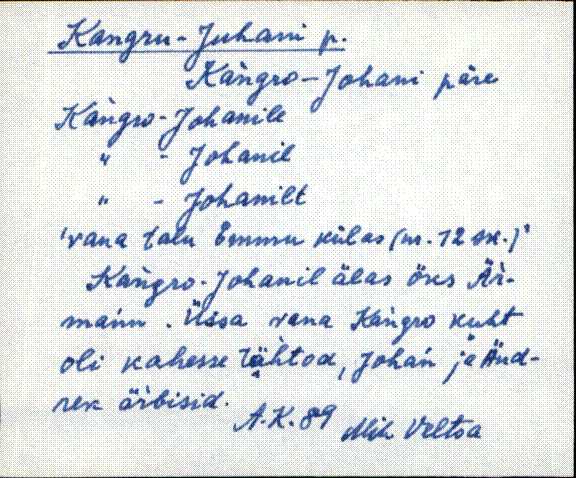 Kangru-Juhani p.
Kàngro-Johani päre
Kàngro-Johanile
" - Johanil
" - Johanilt
'vana talu Emmu külas (nr. 12 sk.)'
Kàngro-Johanil älas öks Är-
mańn. Üissa vana Kàngro kuht
oli kahesse tähtod, Johań ja Änd-
rek ärbisid.
A.K. 89 Mih Veltsa